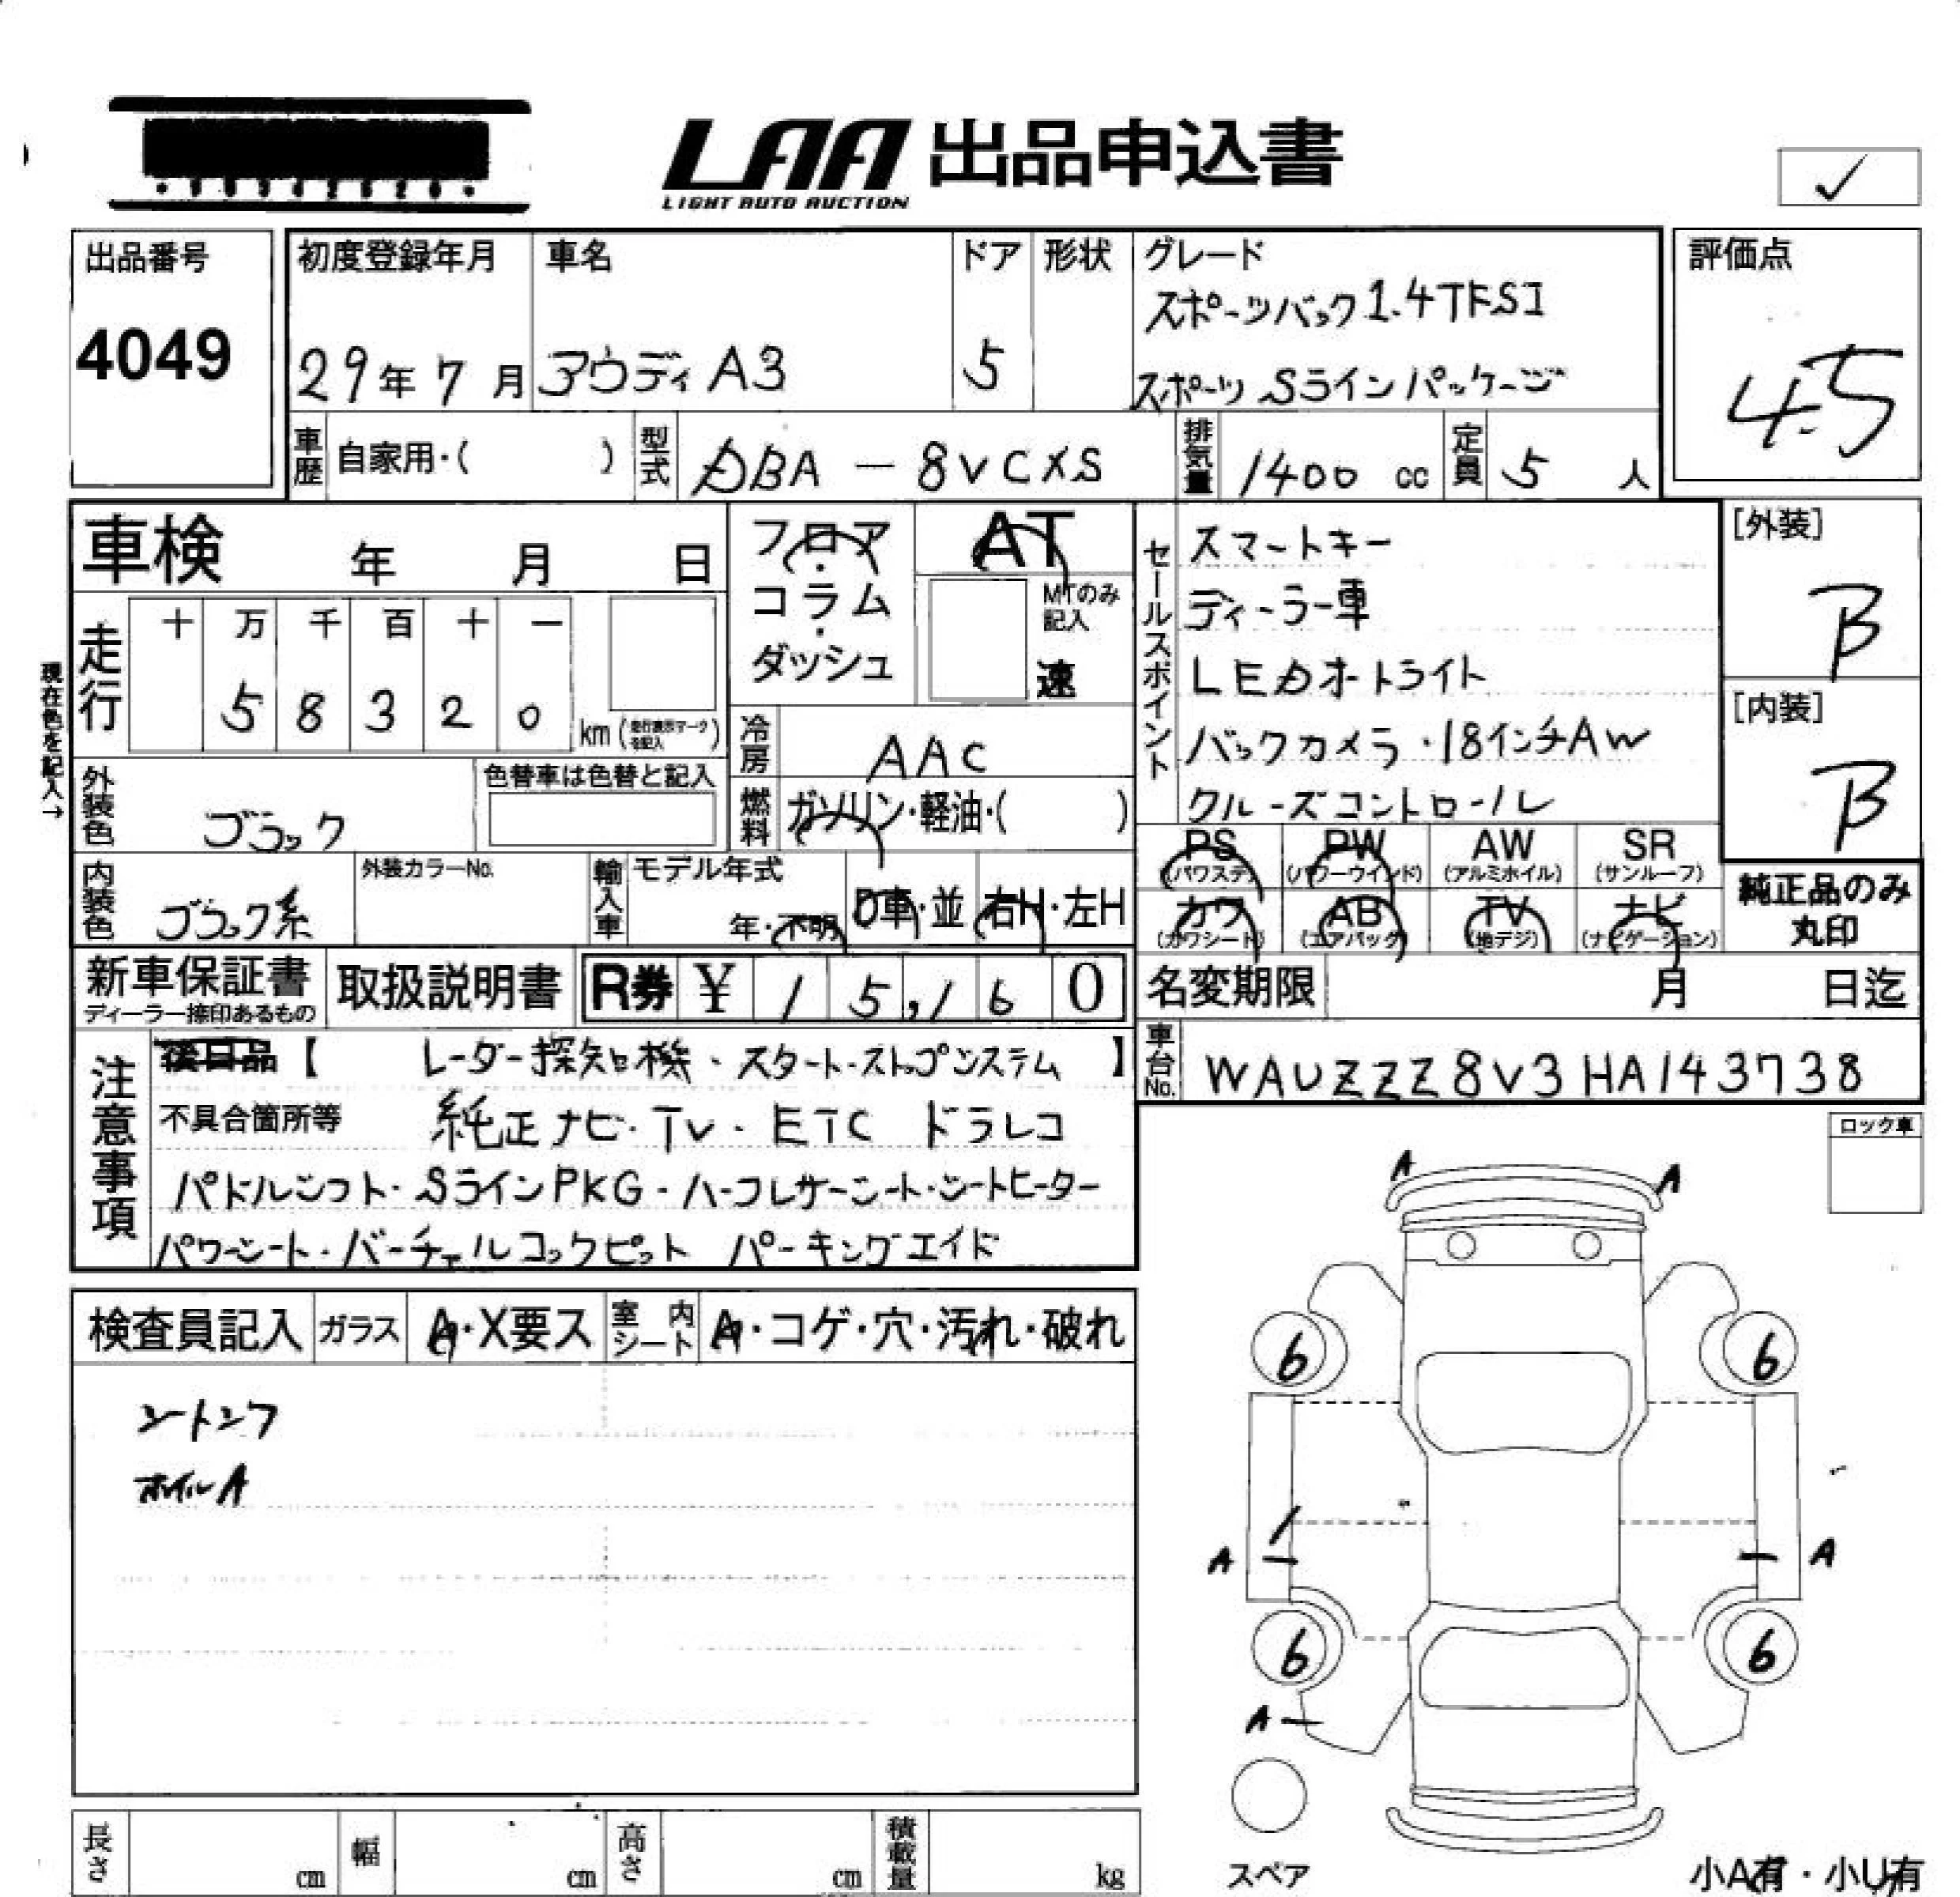 LAA 出品申込書
LIGHT AUTO AUCTION
✓
出品番号
4049
初度登録年月
29年 7月
車名
アウディ A3
ドア
5
形状
グレード
スポーツバック 1.4TFSI
スポーツ Sラインパッケージ
評価点
4.5
車歴 自家用・( )
型式 DBA － 8VCXS
排気量 1400 cc
定員 5 人
車検 年 月 日
フロア・コラム・ダッシュ
AT
MTのみ記入
速
セールスポイント
スマートキー
ディーラー車
LEDオートライト
バックカメラ・18インチAW
クルーズコントロール
[外装]
B
[内装]
B
現在色を記入→
走行 十 万 千 百 十 一
5 8 3 2 0 km (走行表示マークを記入)
冷房 AAC
燃料 ガソリン・軽油・( )
外装色 ブラック
色替車は色替と記入
内装色 ブラック系
外装カラーNo.
輸入車 モデル年式
年・不明 D車・並 右H・左H
PS (パワステ) PW (パワーウインド) AW (アルミホイル) SR (サンルーフ)
カワ (カワシート) AB (エアバッグ) TV (地デジ) ナビ (ナビゲーション)
純正品のみ丸印
新車保証書
ディーラー捺印あるもの
取扱説明書
R券 ¥ 1 5,1 6 0
名変期限 月 日迄
車台No. WAUZZZ8V3HA143738
注意事項
後日品【 レーダー探知機・スタート・ストップシステム 】
不具合箇所等 純正ナビ・TV・ETC ドラレコ
パドルシフト・SラインPKG・ハーフレザーシート・シートヒーター
パワーシート・バーチャルコックピット パーキングエイド
ロック車
検査員記入 ガラス A・X要ス 室内シート A・コゲ・穴・汚れ・破れ
シートシワ
ホイルA
A A
6 6
A A
6 6
A
スペア
長さ cm 幅 cm 高さ cm 積載量 kg
小A有・小U有